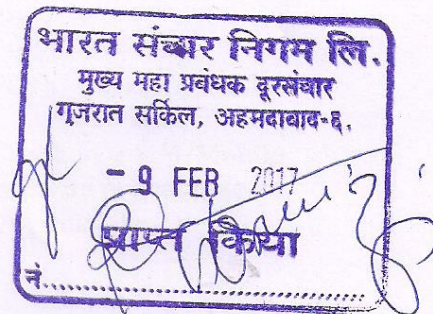 भारत संचार निगम लि.
मुख्य महा प्रबंधक दूरसंचार
गुजरात सर्किल, अहमदाबाद-६.
- 9 FEB 2017
प्राप्त किया
नं.